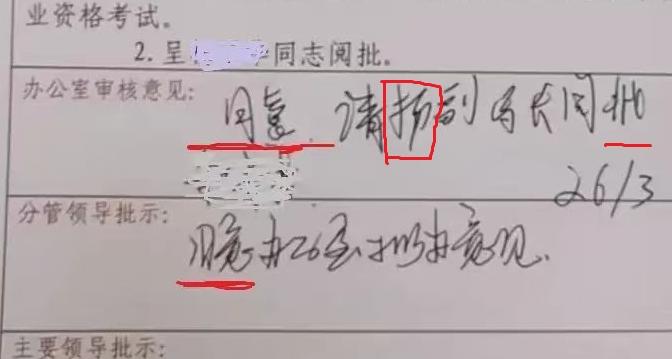 业资格考试。
2. 呈 同志阅批。
办公室审核意见:
同意. 请杨副局长阅批
26/3
分管领导批示:
同意办公室拟办意见.
主要领导批示: